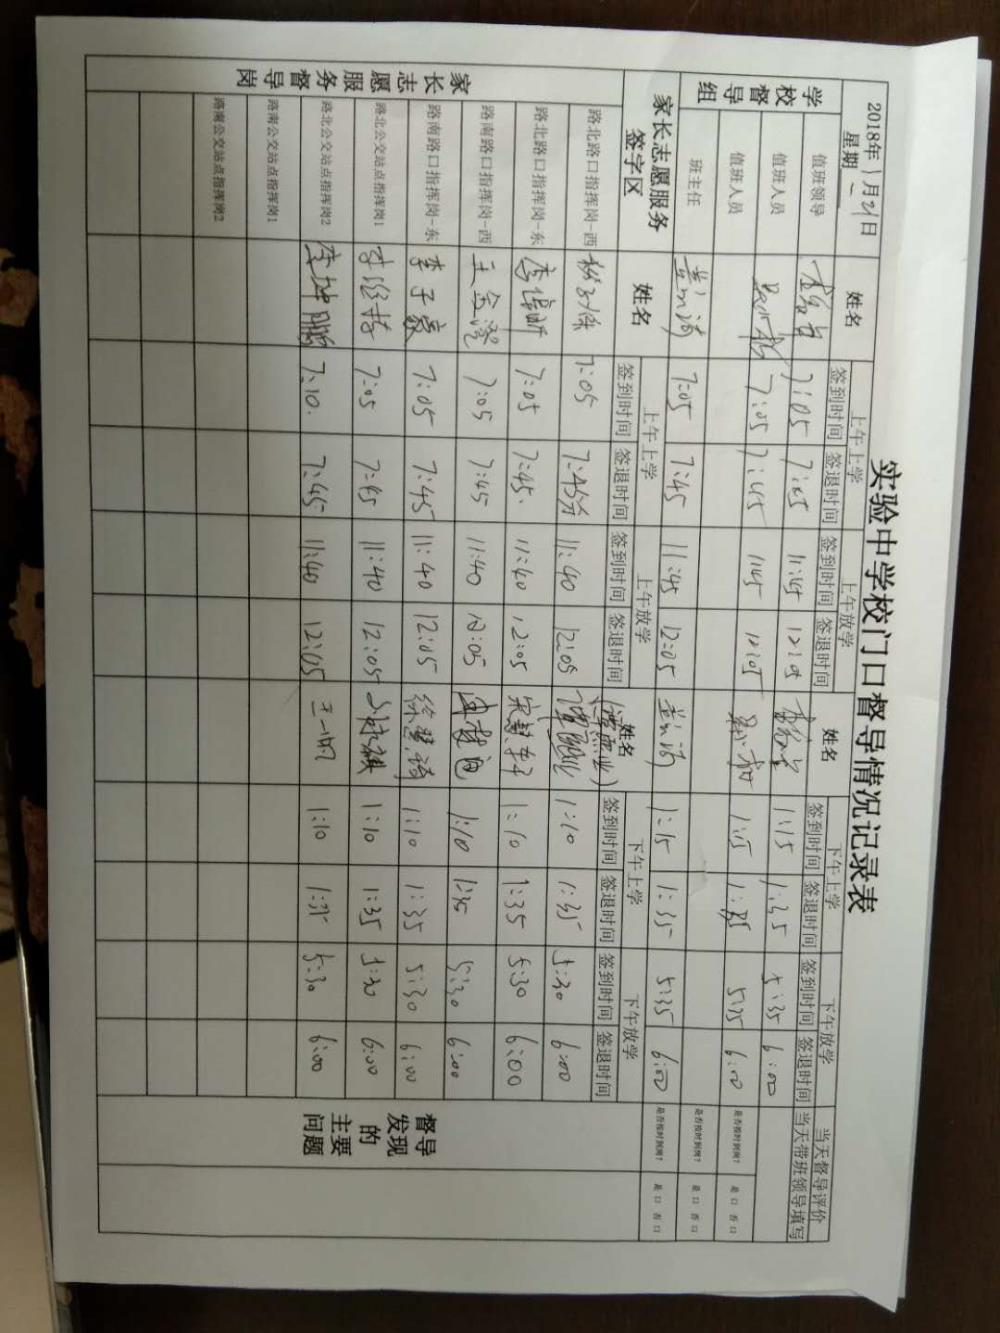 实验中学校门口督导情况记录表
2018年1月21日 星期二 姓名 上午上学 上午放学 姓名 下午上学 下午放学 当天督导评价
签到时间 签退时间 签到时间 签退时间 签到时间 签退时间 签到时间 签退时间 当天带班领导填写
学校督导组
值班领导 7:05 7:45 11:45 12:05 1:15 1:35 5:35 6:00
值班人员 7:05 7:45 1145 12:05 1:15 1:35 5:35 6:00 是否按时到岗? 是口 否口
值班人员 是否按时到岗? 是口 否口
班主任 7:05 7:45 11:45 12:05 1:15 1:35 5:35 6:00 是否按时到岗? 是口 否口
家长志愿服务签字区 姓名 上午上学 上午放学 姓名 下午上学 下午放学
签到时间 签退时间 签到时间 签退时间 签到时间 签退时间 签到时间 签退时间
家长志愿服务督导岗
路北路口指挥岗-西 7:05 7:45分 11:40 12:05 1:10 1:35 5:30 6:00
路北路口指挥岗-东 7:05 7:45 11:40 12:05 1:10 1:35 5:30 6:00
路南路口指挥岗-西 王金澄 7:05 7:45 11:40 12:05 1:10 1:35 5:30 6:00
路南路口指挥岗-东 李子豪 7:05 7:45 11:40 12:05 徐慧琦 1:10 1:35 5:30 6:00
路北公交站点指挥岗1 7:05 7:45 11:40 12:05 1:10 1:35 5:30 6:00
路北公交站点指挥岗2 李坤鹏 7:10. 7:45 11:40 12:05 1:10 1:35 5:30 6:00
路南公交站点指挥岗1
路南公交站点指挥岗2
督导发现的主要问题